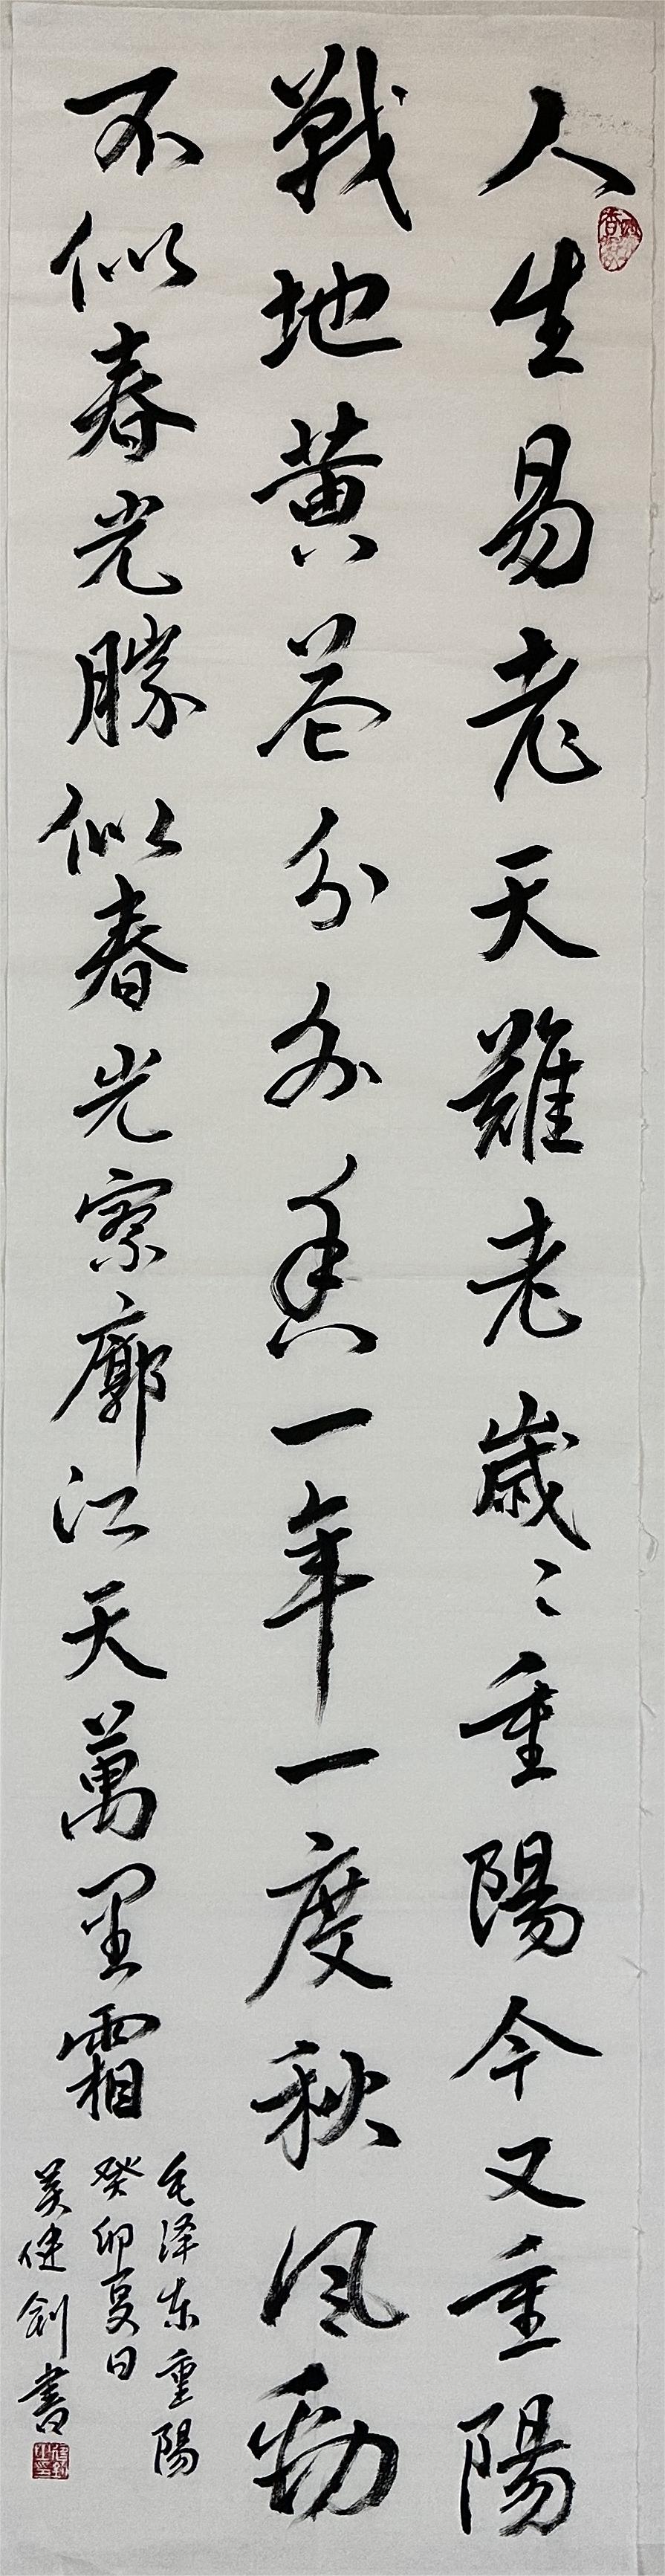 人生易老天難老歲〻重陽今又重陽
戰地黄花分外香一年一度秋风劲
不似春光勝似春光寥廓江天萬里霜
毛泽东重陽
癸卯夏日
吴健剑書